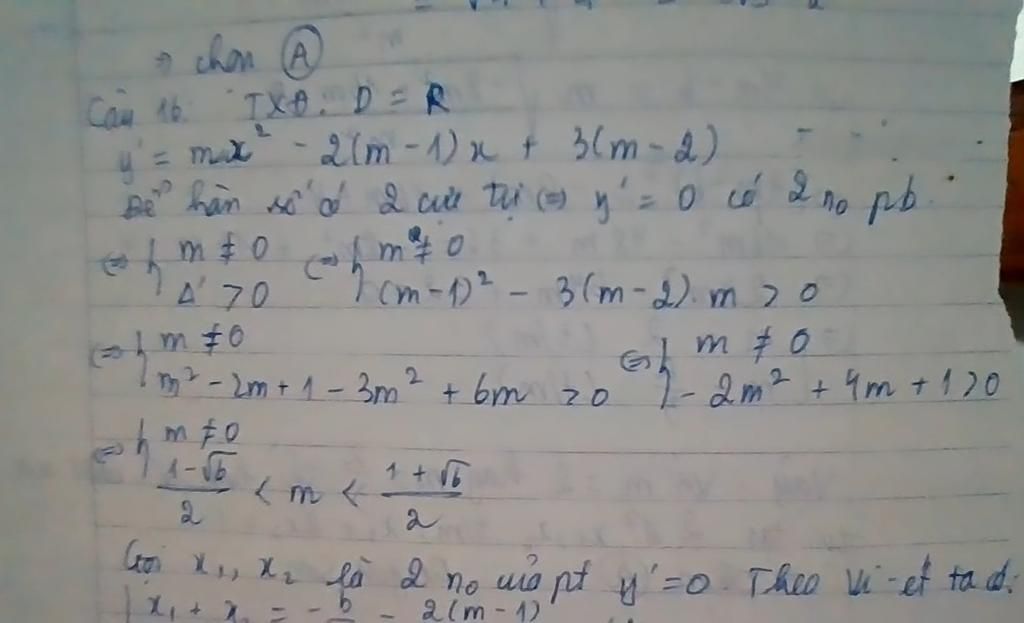 ⇒ chọn Ⓐ
Câu 16. TXĐ. D = R
y' = mx² - 2(m-1)x + 3(m-2)
Để hàn số có 2 cực trị ⇔ y' = 0 có 2 n₀ pb.
⇔ { m ≠ 0 ⇔ { m ≠ 0
Δ' > 0 (m-1)² - 3(m-2).m > 0
⇔ { m ≠ 0 ⇔ { m ≠ 0
m² - 2m + 1 - 3m² + 6m > 0 - 2m² + 4m + 1 > 0
⇔ { m ≠ 0
(1-√6)/2 < m < (1+√6)/2
Gọi x₁, x₂ là 2 n₀ của pt y' = 0. Theo Vi-et ta có:
{ x₁ + x₂ = -b = 2(m-1)